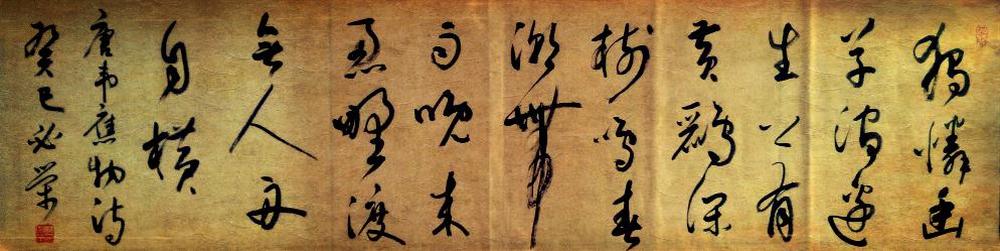 獨憐幽
草澗邊
生上有
黄鸝深
樹鳴春
潮帶
雨晚来
急野渡
無人舟
自横
唐韦應物诗
癸巳必荣